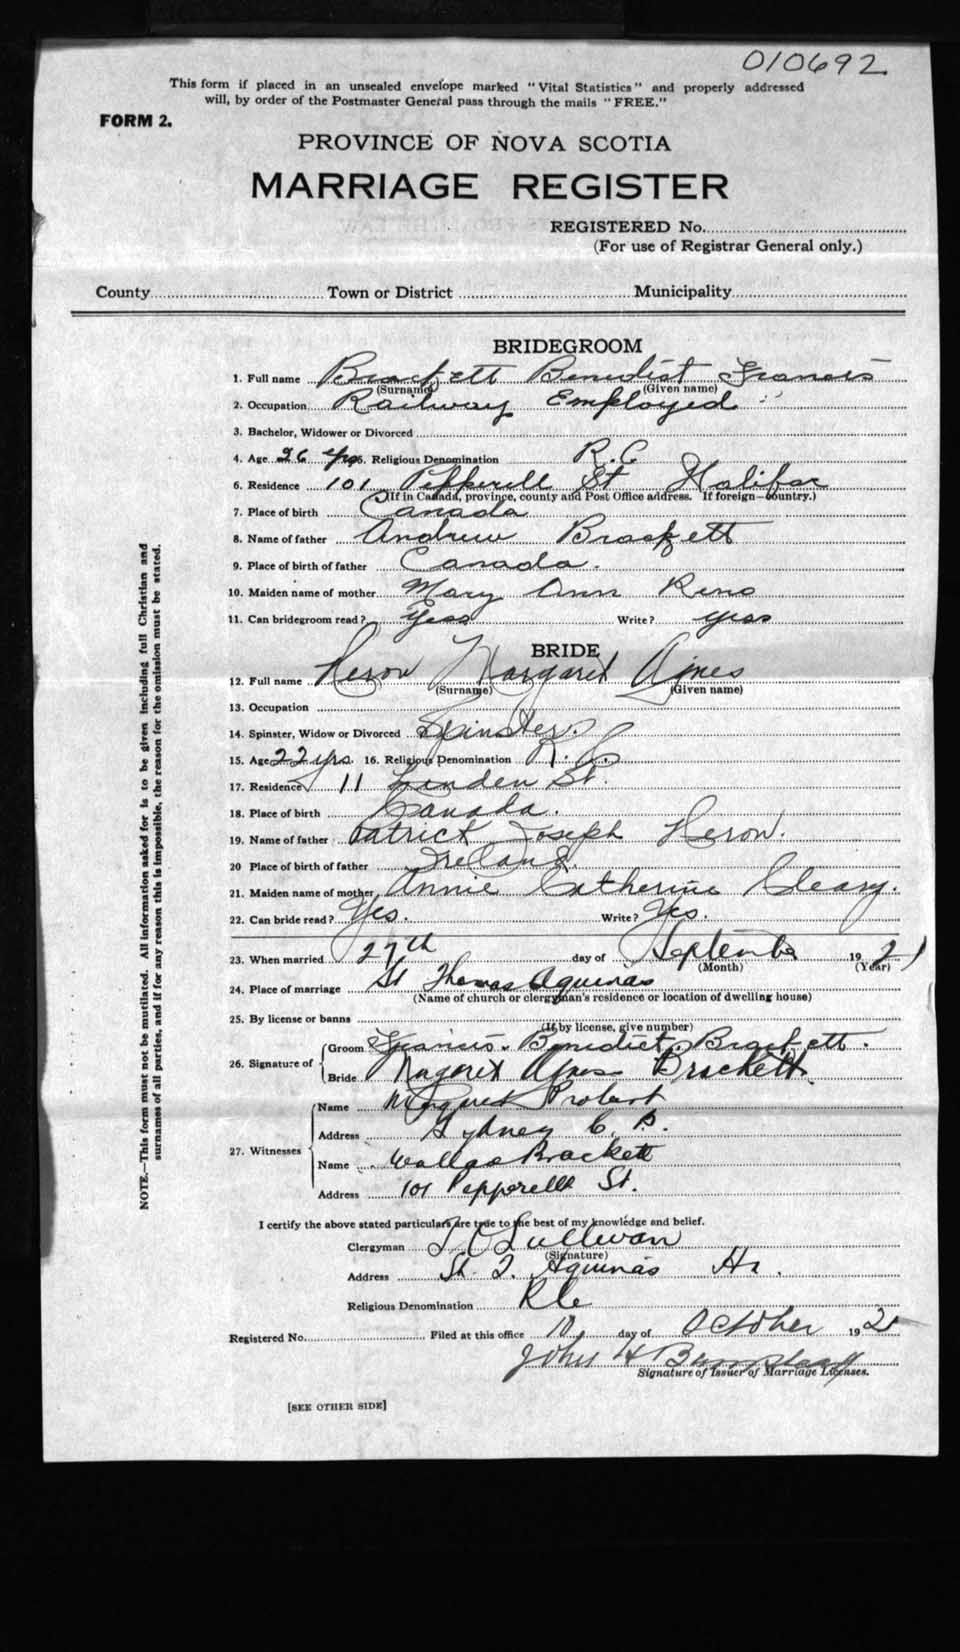 010692
This form if placed in an unsealed envelope marked "Vital Statistics" and properly addressed
will, by order of the Postmaster General pass through the mails "FREE."
FORM 2.
PROVINCE OF NOVA SCOTIA
MARRIAGE REGISTER
REGISTERED No.
(For use of Registrar General only.)
County Town or District Municipality
BRIDEGROOM
1. Full name Brackett Benedict Francis
(Surname) (Given name)
2. Occupation Railway Employed
3. Bachelor, Widower or Divorced
4. Age 26 yrs 5. Religious Denomination R.C
6. Residence 101 Pepperell St Halifax
(If in Canada, province, county and Post Office address. If foreign—country.)
7. Place of birth Canada
8. Name of father Andrew Brackett
9. Place of birth of father Canada.
10. Maiden name of mother Mary Ann Reno
11. Can bridegroom read? Yess Write? yess
BRIDE
12. Full name Heron Margaret Agnes
(Surname) (Given name)
13. Occupation
14. Spinster, Widow or Divorced Spinster.
15. Age 22 yrs. 16. Religious Denomination R.C.
17. Residence 11 Linden St.
18. Place of birth Canada.
19. Name of father Patrick Joseph Heron.
20 Place of birth of father Ireland.
21. Maiden name of mother Annie Catherine Cleary.
22. Can bride read? Yes. Write? Yes.
23. When married 27th day of September 1921
(Month) (Year)
24. Place of marriage St Thomas Aquinas
(Name of church or clergyman's residence or location of dwelling house)
25. By license or banns
(If by license, give number)
26. Signature of Groom Francis Benedict Brackett.
Bride Margaret Agnes Brackett
27. Witnesses Name Margaret Probert
Address Sydney C.B.
Name Wallace Brackett
Address 101 Pepperell St.
I certify the above stated particulars are true to the best of my knowledge and belief.
Clergyman O'Sullivan
(Signature)
Address St. T. Aquinas Hx.
Religious Denomination R C
Registered No. Filed at this office 10 day of October 192
John H
Signature of Issuer of Marriage Licenses.
[SEE OTHER SIDE]
NOTE.—This form must not be mutilated. All information asked for is to be given including full Christian and
surnames of all parties, and if for any reason this is impossible, the reason for the omission must be stated.